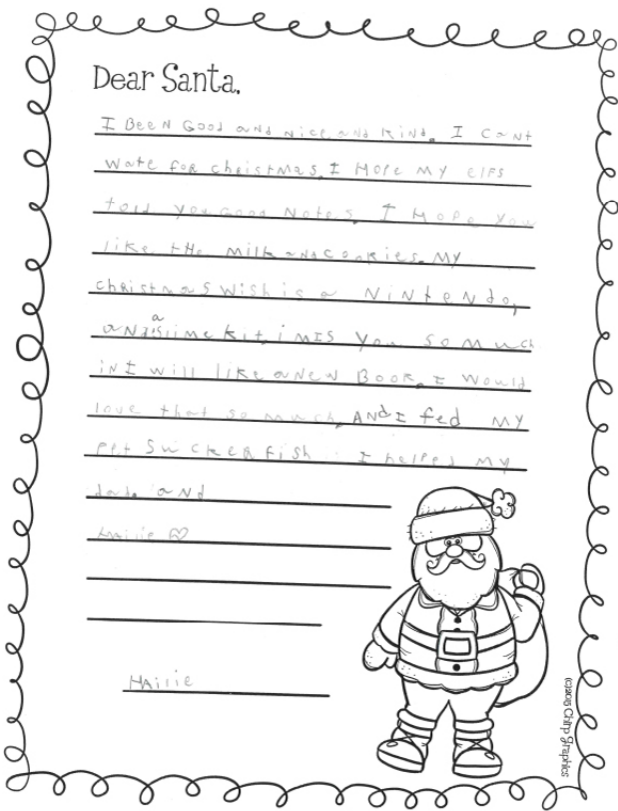 Dear Santa,
I BeeN Good aNd Nice aNd KiNd. I CaNt
wate foR chRistmas. I HoPe MY elfs
told you Good Notes. I HoPe You
like tHe Milk aNd cookies. MY
chRistmas Wish is a NiNteNdo,
aNd a slime kit. i MIS You so Much
iN I will like a New Book. I Would
love that so much. ANd I fed MY
pet SuckeR fish I helped MY
dad. aNd
HAilie ♡
HAilie
(c)2015 Chirp Graphics